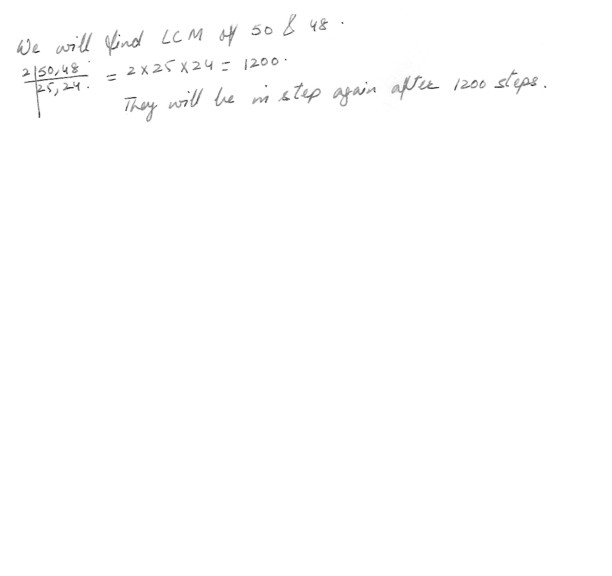 We will find LCM of 50 & 48.
2|50,48 = 2 x 25 x 24 = 1200.
|25, 24.
They will be in step again after 1200 steps.